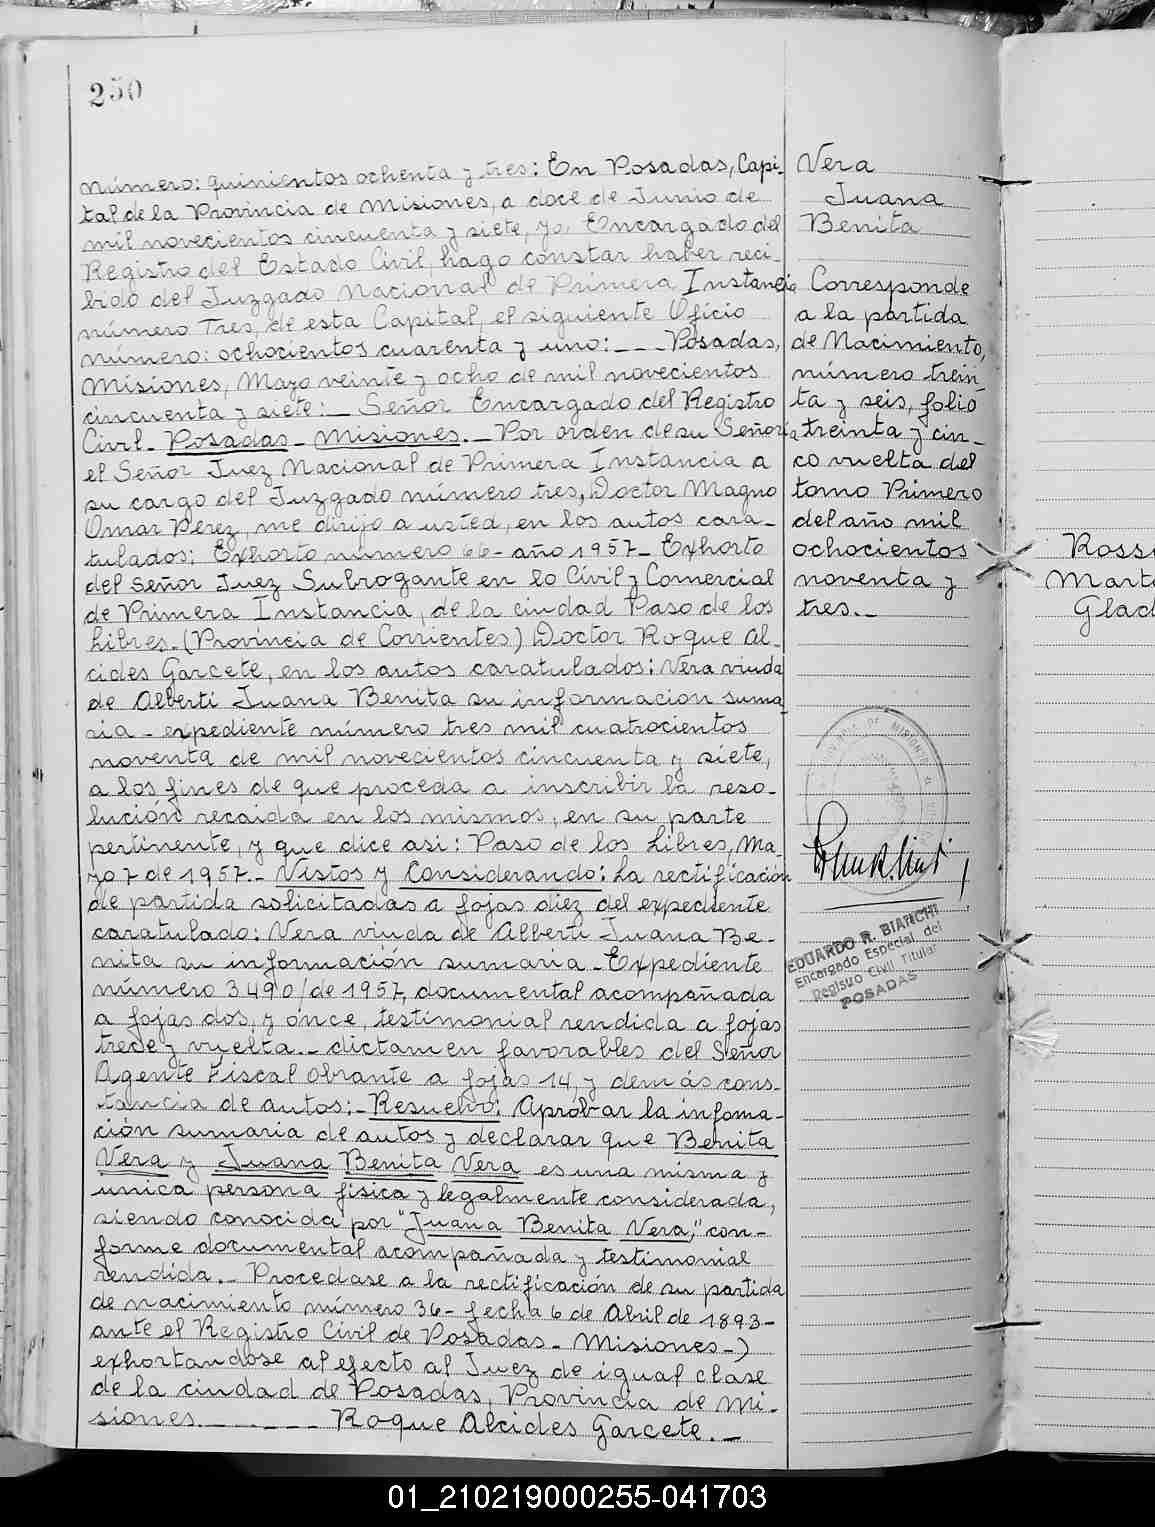 250
número: quinientos ochenta y tres: En Posadas, Capi-
tal de la Provincia de Misiones, a doce de Junio de
mil novecientos cincuenta y siete, yo, Encargado del
Registro del Estado Civil, hago constar haber reci-
bido del Juzgado Nacional de Primera Instancia
número Tres, de esta Capital, el siguiente Oficio
número: ochocientos cuarenta y uno: _ _ _ Posadas,
Misiones, Mayo veinte y ocho de mil novecientos
cincuenta y siete: _ Señor Encargado del Registro
Civil _ Posadas _ Misiones. _ Por orden de su Señoría
el Señor Juez Nacional de Primera Instancia a
su cargo del Juzgado número tres, Doctor Magno
Omar Perez, me dirijo a usted, en los autos cara-
tulados: Exhorto número 66 - año 1957 _ Exhorto
del Señor Juez Subrogante en lo Civil y Comercial
de Primera Instancia, de la ciudad Paso de los
Libres. (Provincia de Corrientes) Doctor Roque Al-
cides Garcete, en los autos caratulados: Vera viuda
de Alberti Juana Benita su informacion suma-
ria - expediente número tres mil cuatrocientos
noventa de mil novecientos cincuenta y siete,
a los fines de que proceda a inscribir la reso-
lución recaida en los mismos, en su parte
pertinente, y que dice asi: Paso de los Libres, Ma-
yo 7 de 1957. _ Vistos y Considerando: La rectificación
de partida solicitadas a fojas diez del expediente
caratulado: Vera viuda de Alberti Juana Be-
nita su información sumaria _ Expediente
número 3490/de 1957, documental acompañada
a fojas dos, y once, testimonial rendida a fojas
trece y vuelta. _ dictamen favorables del Señor
Agente Fiscal obrante a fojas 14, y demás cons-
tancia de autos: _ Resuelvo: Aprobar la infoma-
ción sumaria de autos y declarar que Benita
Vera y Juana Benita Vera es una misma y
unica persona fisica y legalmente considerada,
siendo conocida por "Juana Benita Vera," con-
forme documental acompañada y testimonial
rendida. _ Procedase a la rectificación de su partida
de nacimiento número 36 - fecha 6 de Abril de 1893 -
ante el Registro Civil de Posadas _ Misiones _)
exhortandose al efecto al Juez de igual clase
de la ciudad de Posadas, Provincia de Mi-
siones. _ _ _ _ _ Roque Alcides Garcete. _
Vera
Juana
Benita
Corresponde
a la partida
de Nacimiento,
número trein-
ta y seis, folio
treinta y cin-
co vuelta del
tomo Primero
del año mil
ochocientos
noventa y
tres. _
EDUARDO R. BIANCHI
Encargado Especial del
Registro Civil Titular
POSADAS
Ross
Mart
Glad
01_210219000255-041703